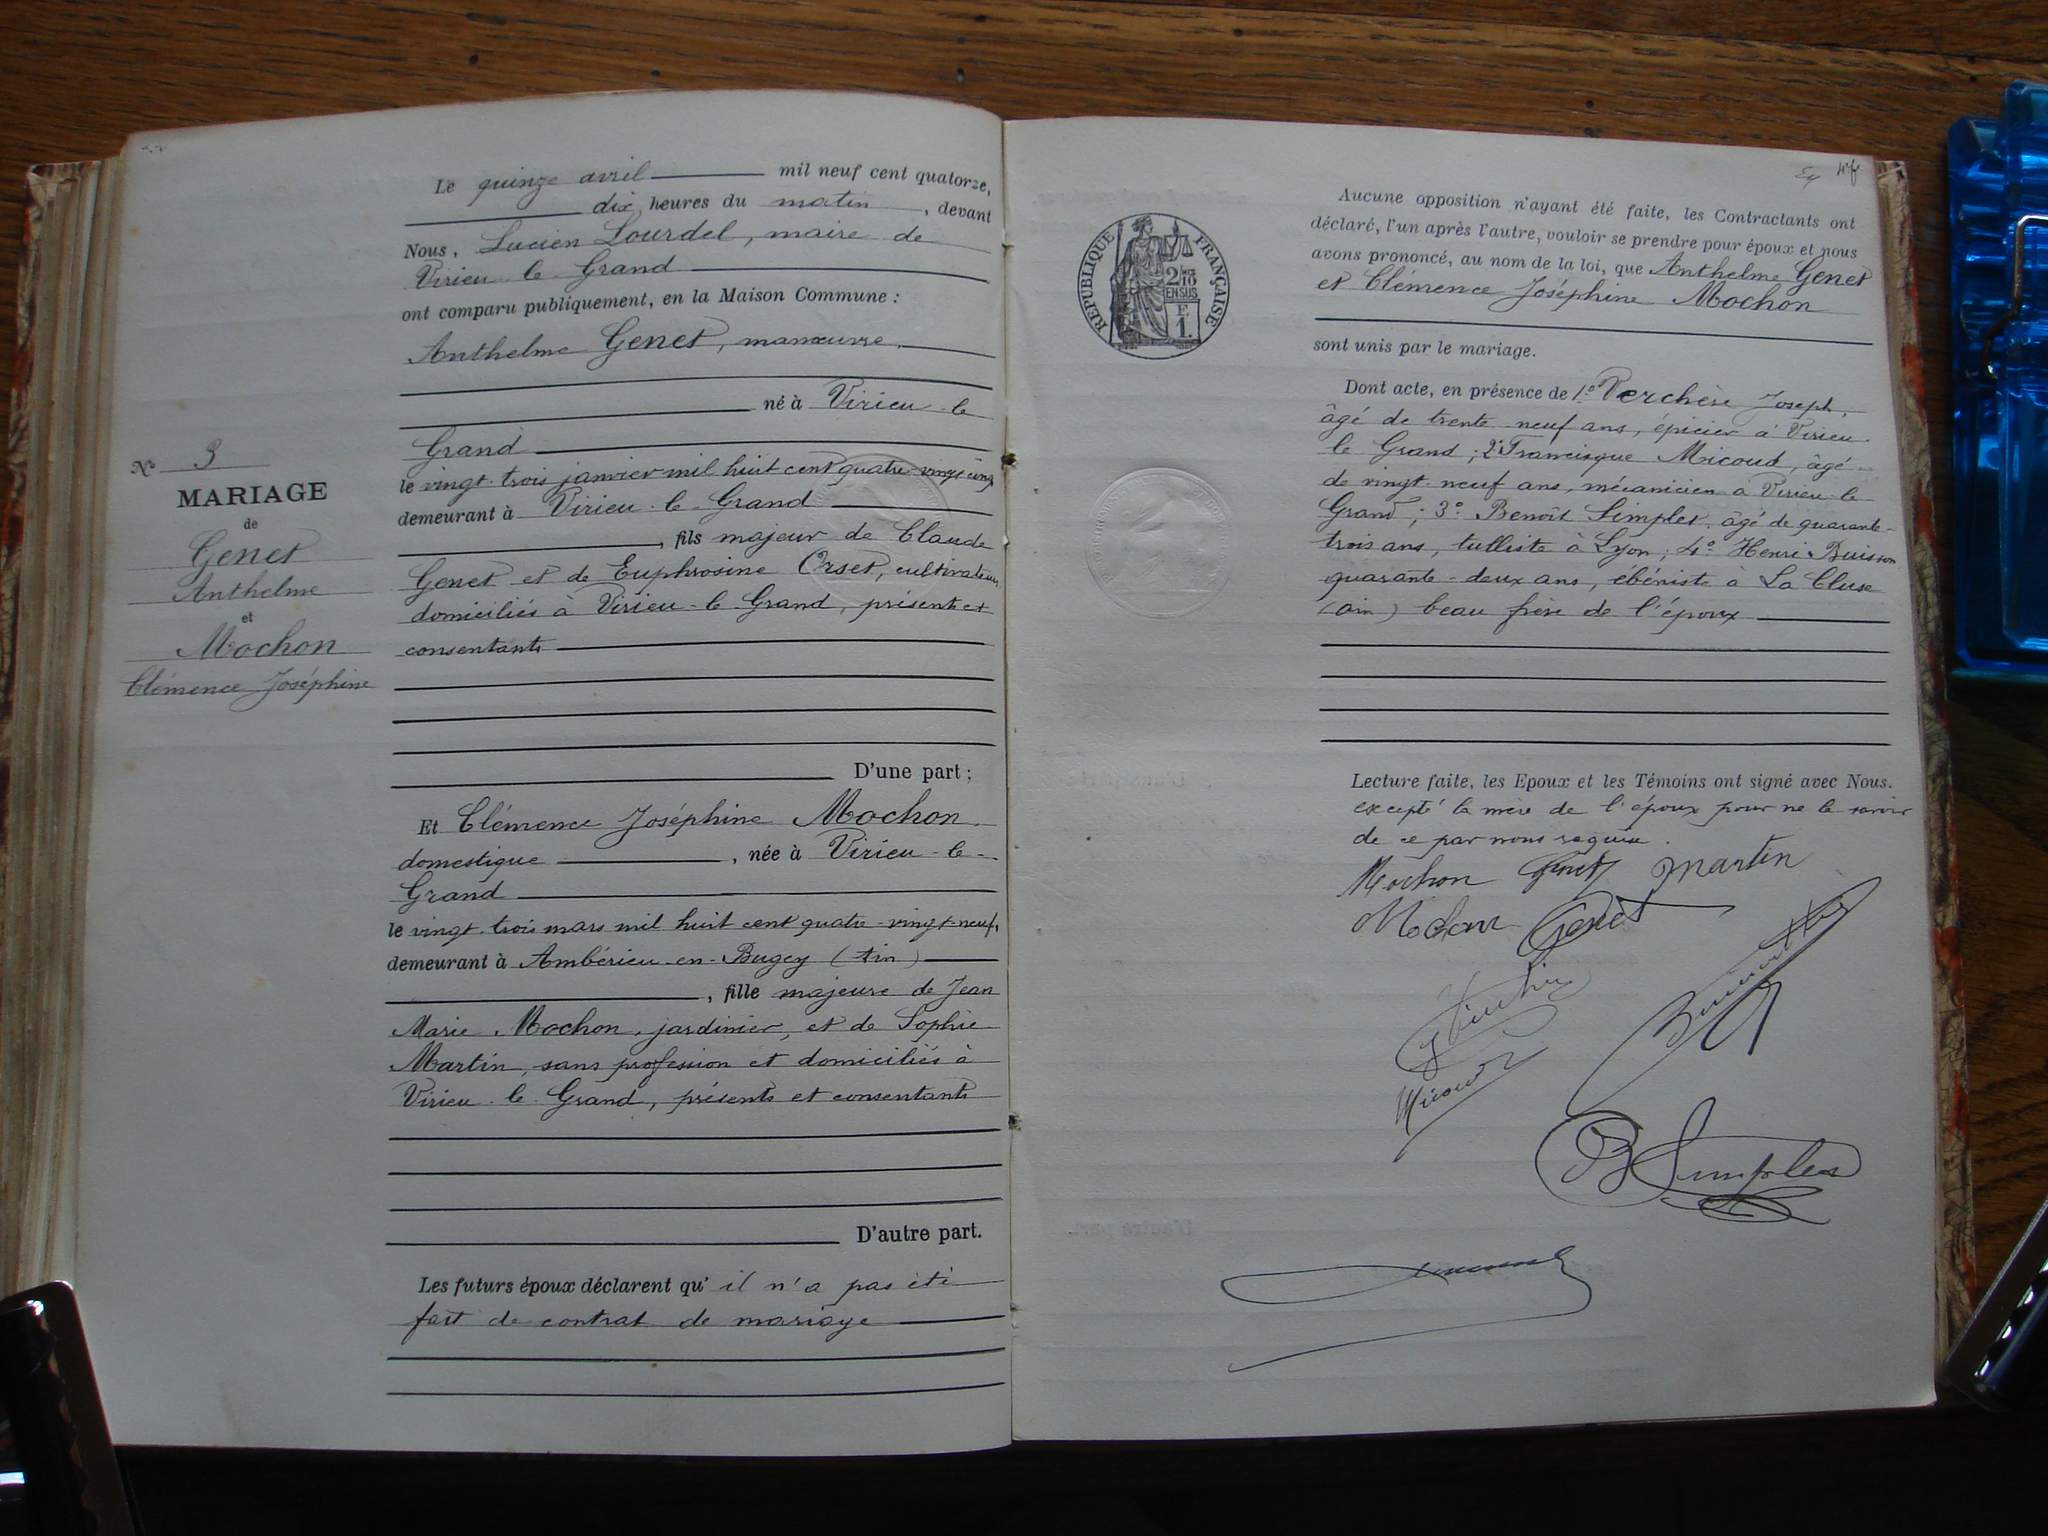 Le quinze avril mil neuf cent quatorze,
dix heures du matin, devant
Nous, Lucien Lourdel, maire de
Virieu-le-Grand
ont comparu publiquement, en la Maison Commune :
Anthelme Genet, manœuvre,
né à Virieu-le-
Grand
le vingt-trois janvier mil huit cent quatre-vingt-cinq
demeurant à Virieu-le-Grand
, fils majeur de Claude
Genet et de Euphrosine Orset, cultivateurs,
domiciliés à Virieu-le-Grand, présents et
consentants
D'une part ;
Et Clémence Joséphine Mochon
domestique, née à Virieu-le-
Grand
le vingt-trois mars mil huit cent quatre-vingt-neuf,
demeurant à Ambérieu-en-Bugey (Ain)
, fille majeure de Jean
Marie Mochon, jardinier, et de Sophie
Martin, sans profession et domiciliés à
Virieu-le-Grand, présents et consentants
D'autre part.
Les futurs époux déclarent qu'il n'a pas été
fait de contrat de mariage
N° 3
MARIAGE
de
Genet
Anthelme
et
Mochon
Clémence Joséphine
RÉPUBLIQUE FRANÇAISE
2/10
EN SUS
F.
1.
Aucune opposition n'ayant été faite, les Contractants ont
déclaré, l'un après l'autre, vouloir se prendre pour époux et nous
avons prononcé, au nom de la loi, que Anthelme Genet
et Clémence Joséphine Mochon
sont unis par le mariage.
Dont acte, en présence de 1° Verchère Joseph,
âgé de trente-neuf ans, épicier à Virieu
le Grand ; 2° Francisque Micoud, âgé
de vingt-neuf ans, mécanicien à Virieu-le
Grand ; 3° Benoît Simples, âgé de quarante-
trois ans, tulliste à Lyon ; 4° Henri Buisson
quarante-deux ans, ébéniste à La Cluse
(ain) beau frère de l'époux
Lecture faite, les Epoux et les Témoins ont signé avec Nous.
excepté la mère de l'époux pour ne le savoir
de ce par nous requise.
Mochon Genet Martin
Mochon Genet
Micoud
B Simples